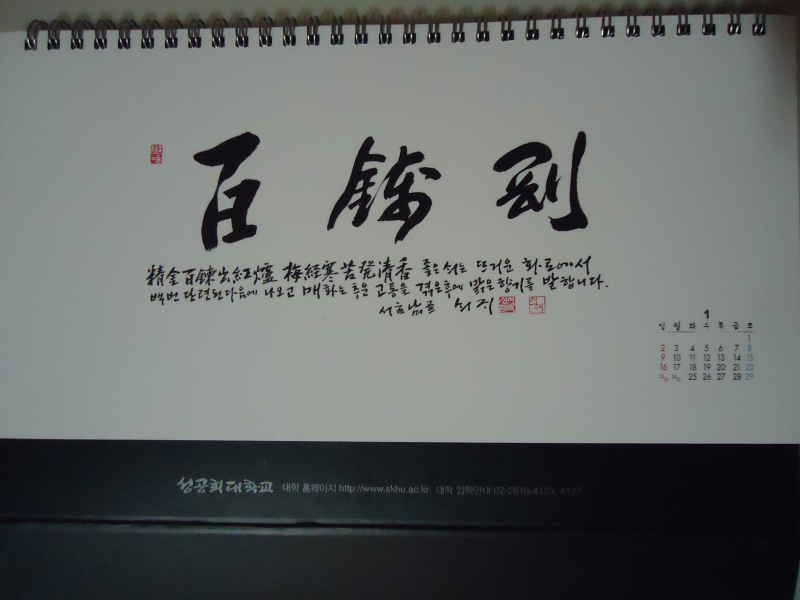 百鍊剛
精金百鍊出紅爐 梅經寒苦發清香 좋은 쇠는 뜨거운 화로에서
백번 단련된 다음에 나오고 매화는 추운 고통을 겪은 후에 맑은 향기를 발합니다.
쇠귀
1
일 월 화 수 목 금 토
1
2 3 4 5 6 7 8
9 10 11 12 13 14 15
16 17 18 19 20 21 22
23/30 24/31 25 26 27 28 29
성공회대학교 대학 홈페이지 http://www.skhu.ac.kr 대학 입학안내 02-2610-4123, 4127